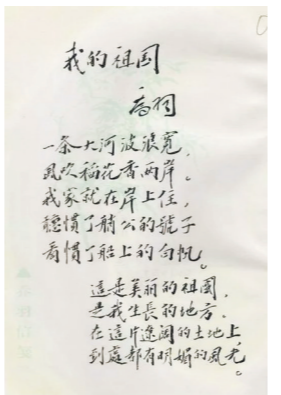 我的祖国
乔羽
一条大河波浪寬，
風吹稻花香两岸。
我家就在岸上住，
聽慣了艄公的號子
看慣了船上的白帆。
這是美丽的祖國，
是我生長的地方，
在這片遼闊的土地上，
到處都有明媚的風光。